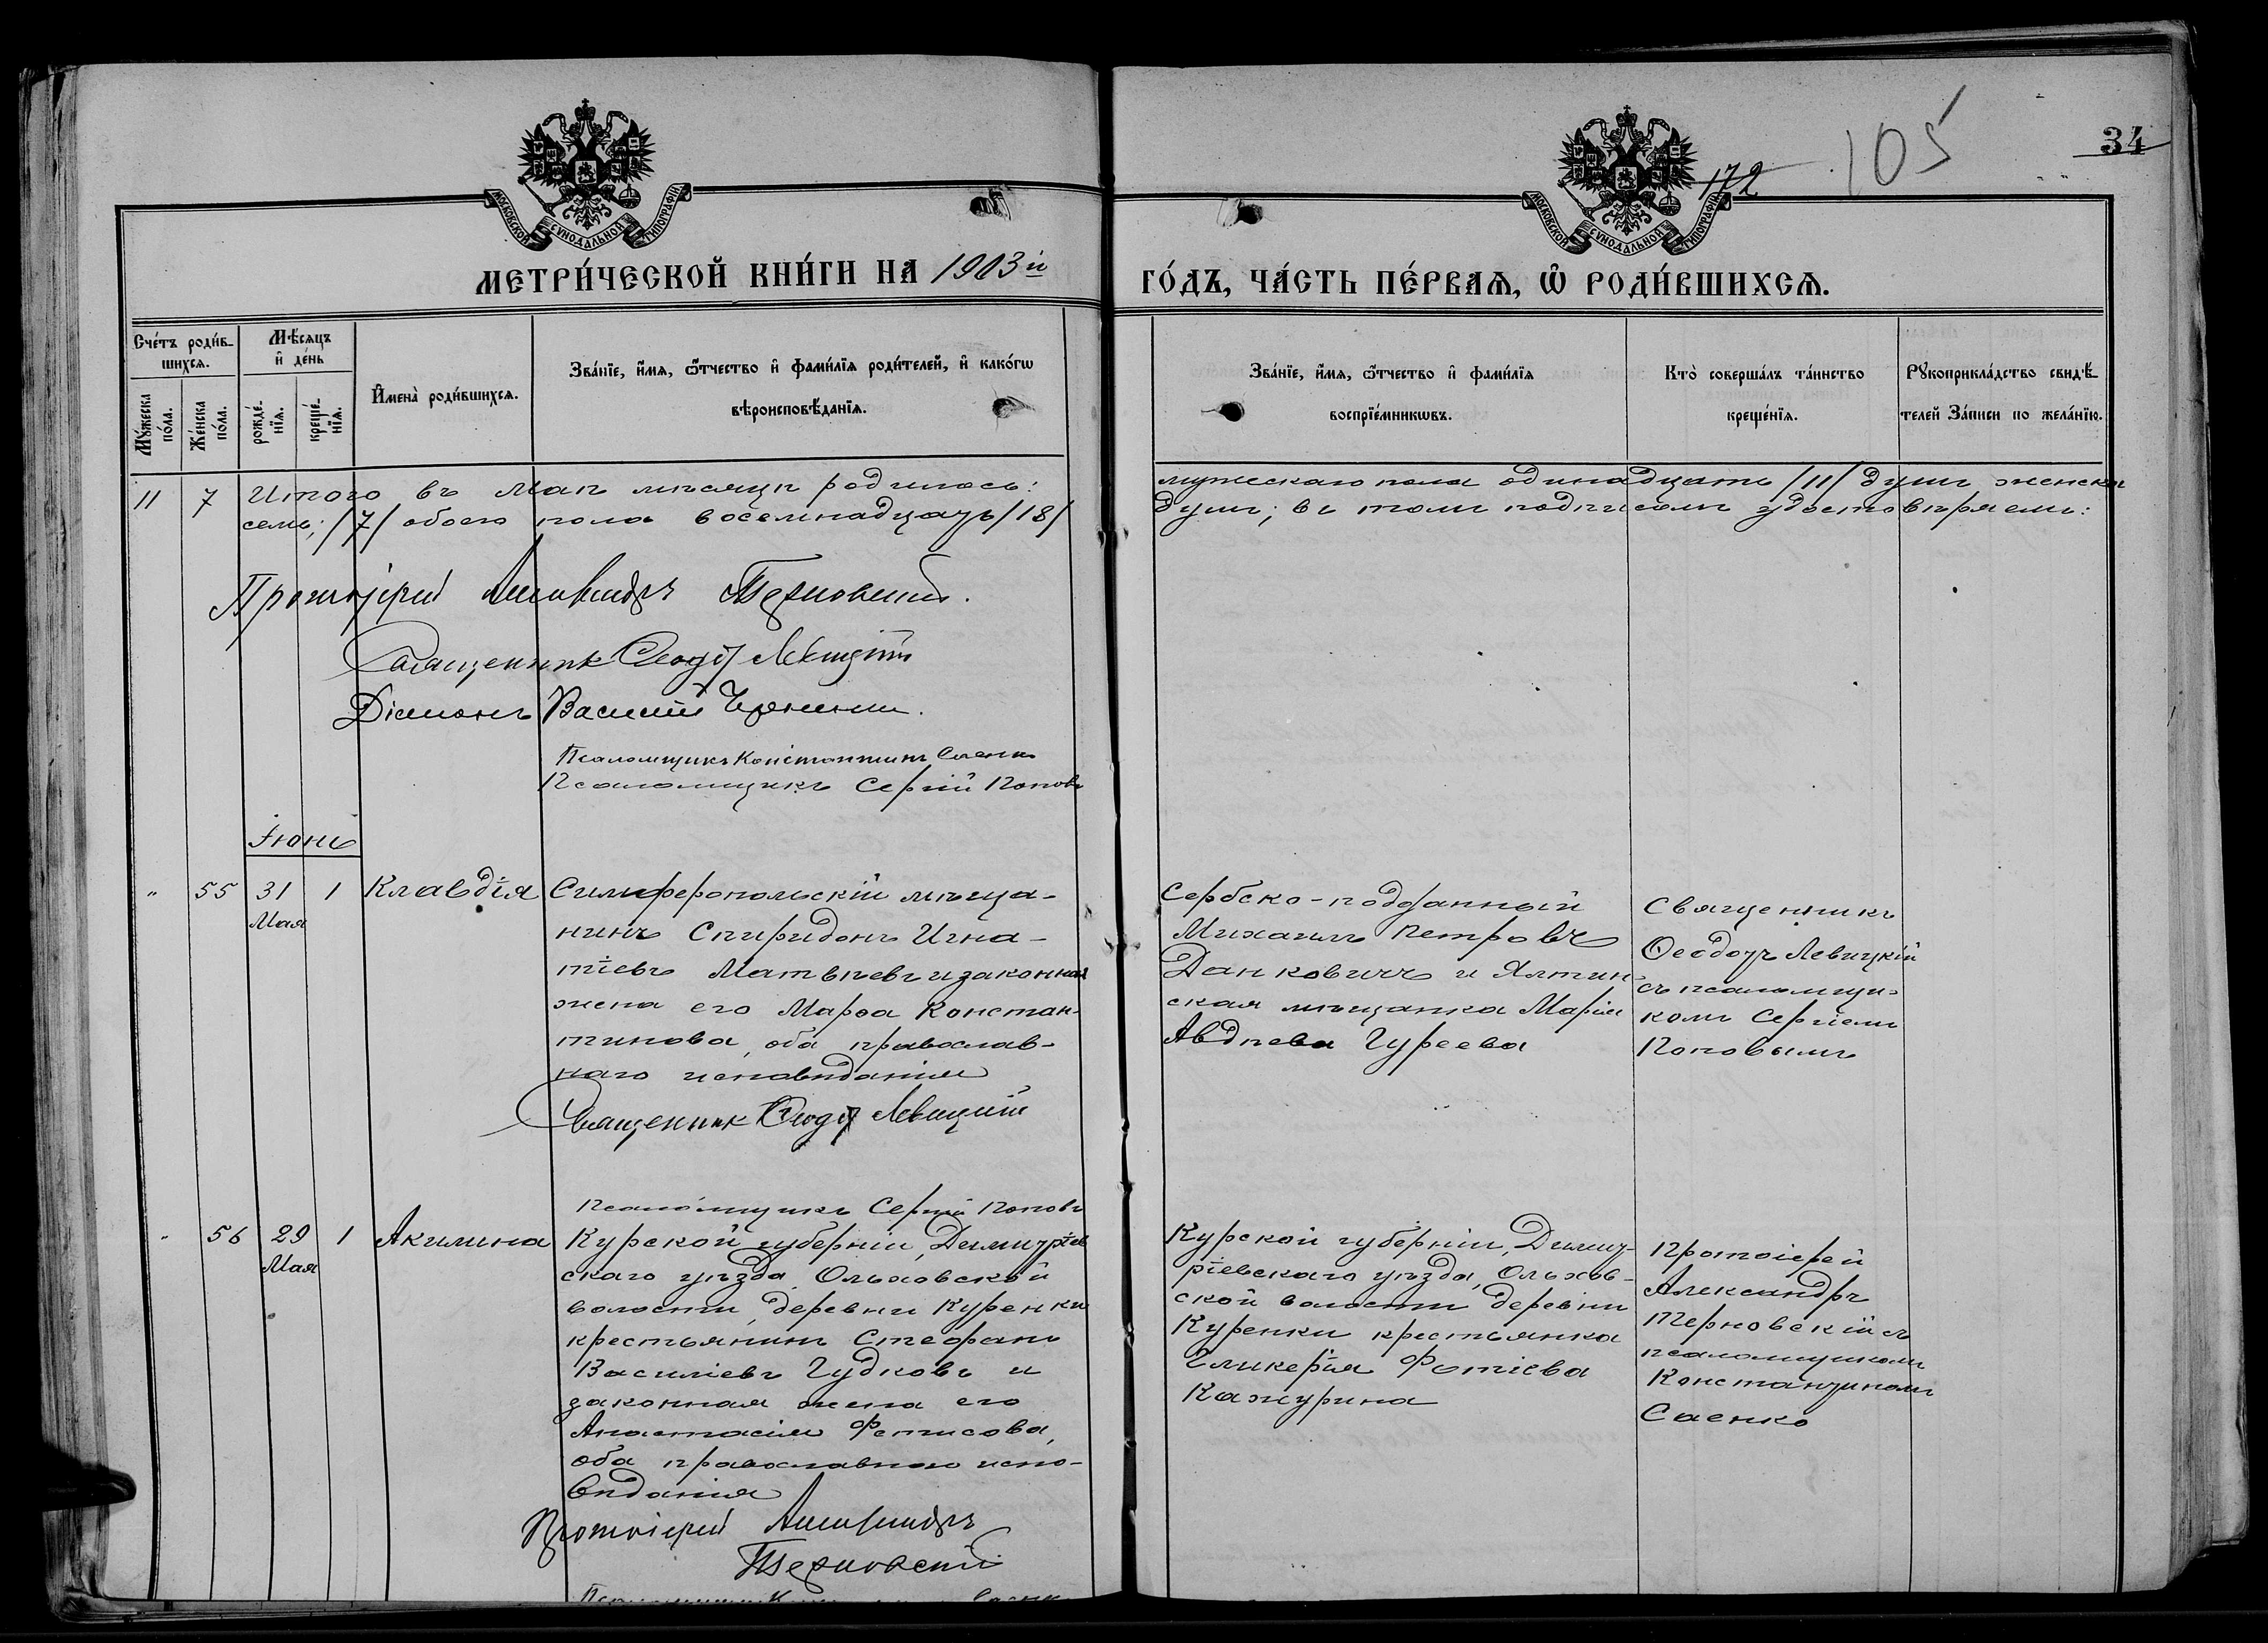 105
34
172
МОСКОВСКОЙ СѴНОДАЛЬНОЙ ТИПОГРАФІИ
МОСКОВСКОЙ СѴНОДАЛЬНОЙ ТИПОГРАФІИ
МЕТРИ́ЧЕСКОЙ КНИ́ГИ НА 1903й ГО́ДЪ, ЧА́СТЬ ПЕ́РВАѦ, Ѡ҆ РОДИ́ВШИХСѦ.
Сче́тъ роди́в-
шихсѧ.
Мꙋ́жеска
по́ла.
Же́нска
по́ла.
Мѣ́сяцъ
и҆ де́нь
рожде́-
нїѧ.
креще́-
нїѧ.
И҆мена̀ роди́вшихсѧ.
Зва́нїе, и҆́мѧ, ѻ҆́тчество и҆ фами́лїѧ роди́телей, и҆ како́гѡ
вѣроисповѣ́данїѧ.
Зва́нїе, и҆́мѧ, ѻ҆́тчество и҆ фами́лїѧ
воспрїе́мникѡвъ.
Кто̀ соверша́лъ та́инство
креще́нїѧ.
Рꙋкоприкла́дство свидѣ́-
телей За́писи по жела́нїю.
11 7 Итого въ Маѣ мѣсяцѣ родилось: мужескаго пола одинадцать /11/ душъ женска
семь; /7/ обоего пола восемнадцать /18/ душъ; въ томъ подписомъ удостовѣряемъ:
Протоіерей Александръ Терновскій.
Священник Ѳеодоръ Левицкій
Діаконъ Василій
Псаломщикъ Константинъ Саенко
Псаломщикъ Сергій Поповъ
Іюнь
" 55 31 1 Клавдія
Мая
Симферопольскій мѣща-
нинъ Спиридонъ Игна-
тіевъ Матвѣевъ и законная
жена его Марѳа Констан-
тинова, оба православ-
наго исповѣданія
Священник Ѳеодоръ Левицкій
Псаломщикъ Сергій Поповъ
Сербско-подданный
Михаилъ Петровъ
Данковичъ и Ялтин-
ская мѣщанка Марія
Авдѣева Гуреева
Священникъ
Ѳеодоръ Левицкій
съ псаломщи-
комъ Сергіемъ
Поповымъ
" 56 29 1 Акилина
Мая
Курской губерніи, Димитріев
скаго уѣзда, Ольховской
волости, деревни Куренки
крестьянинъ Стефанъ
Василіевъ Гудковъ и
законная жена его
Анастасія Фетисова,
оба православнаго испо-
вѣданія
Протоіерей Александръ
Терновскій
Курской губерніи, Димит-
ріевскаго уѣзда, Ольхов-
ской волости деревни
Куренки крестьянка
Гликерія Фотіева
Кажурина
Протоіерей
Александръ
Терновскій съ
псаломщикомъ
Константиномъ
Саенко